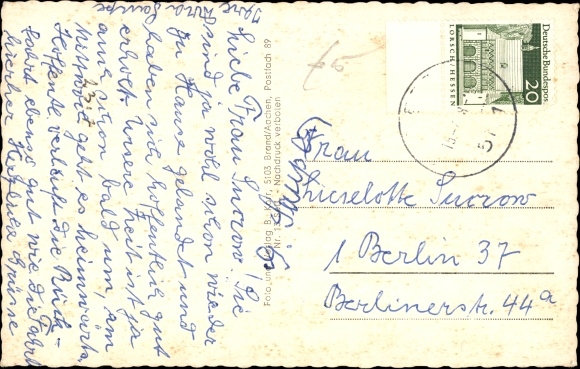 Liebe Frau Sucrow! Sie
sind ja wohl schon wieder
zu Hause gelandet und
haben sich hoffentlich gut
erholt. Unsere Zeit ist ja
nun schon bald um, am
Mittwoch geht es heimwärts.
23.7.
Hoffentl. verläuft die Rück-
fahrt ebenso gut wie die Fahrt
hierher. Herzliche Grüße
Ihre
Foto und Verlag 5103 Brand/Aachen Postfach 89
Nachdruck verboten
Deutsche Bundespost
20
LORSCH / HESSEN
Frau
Lieselotte Sucrow
1 Berlin 37
Berlinerstr. 44a